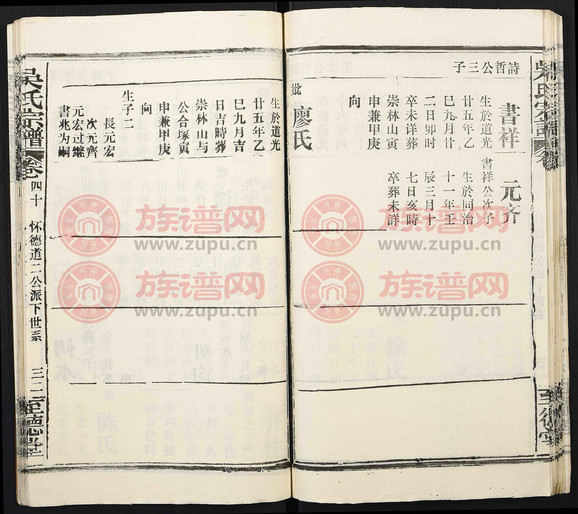 詩哲公三子
書祥
生於道光
廿五年乙
巳九月廿
二日卯時
卒未詳葬
崇林山寅
申兼甲庚
向
元齐
書祥公次子
生於同治
十一年壬
辰三月十
七日亥時
卒葬未詳
妣廖氏
生於道光
廿五年乙
巳九月吉
日吉時葬
崇林山与
公合塚寅
申兼甲庚
向
生子二
長元宏
次元齊
元宏过继
書兆为嗣
吳氏宗譜
卷四十
怀德道二公派下世系
三二
至德堂
族谱网
www.zupu.cn
族谱网
www.zupu.cn
族谱网
www.zupu.cn
族谱网
www.zupu.cn